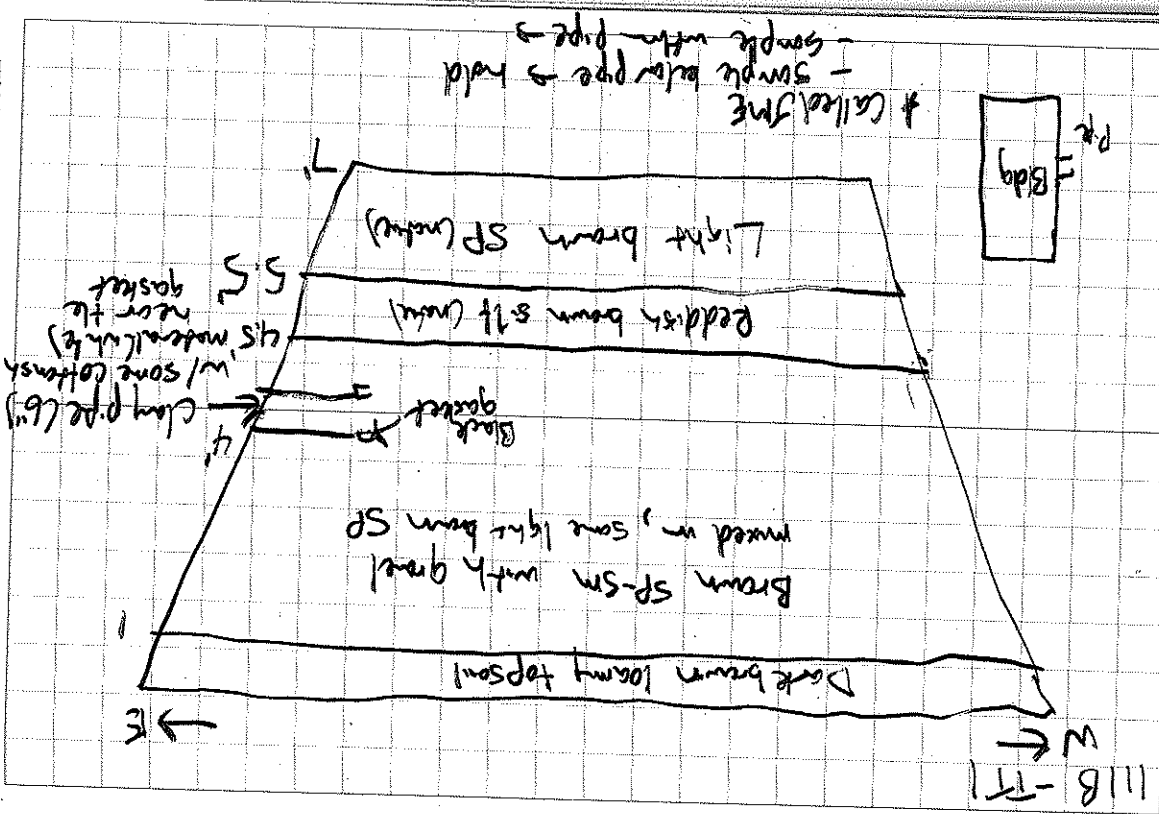 111B-TT1
W
E
Dark brown loamy topsoil
1
Brown SP-SM with gravel
mixed in, some light brown SP
4'
Black
gasket
Clay pipe (6")
w/ some cottonish
material (white)
near the
gasket
4.5'
Reddish brown silt (native)
5.5'
Light brown SP (native)
7'
Bldg
Pipe
* Called JME
- sample below pipe → hold
- sample within pipe →